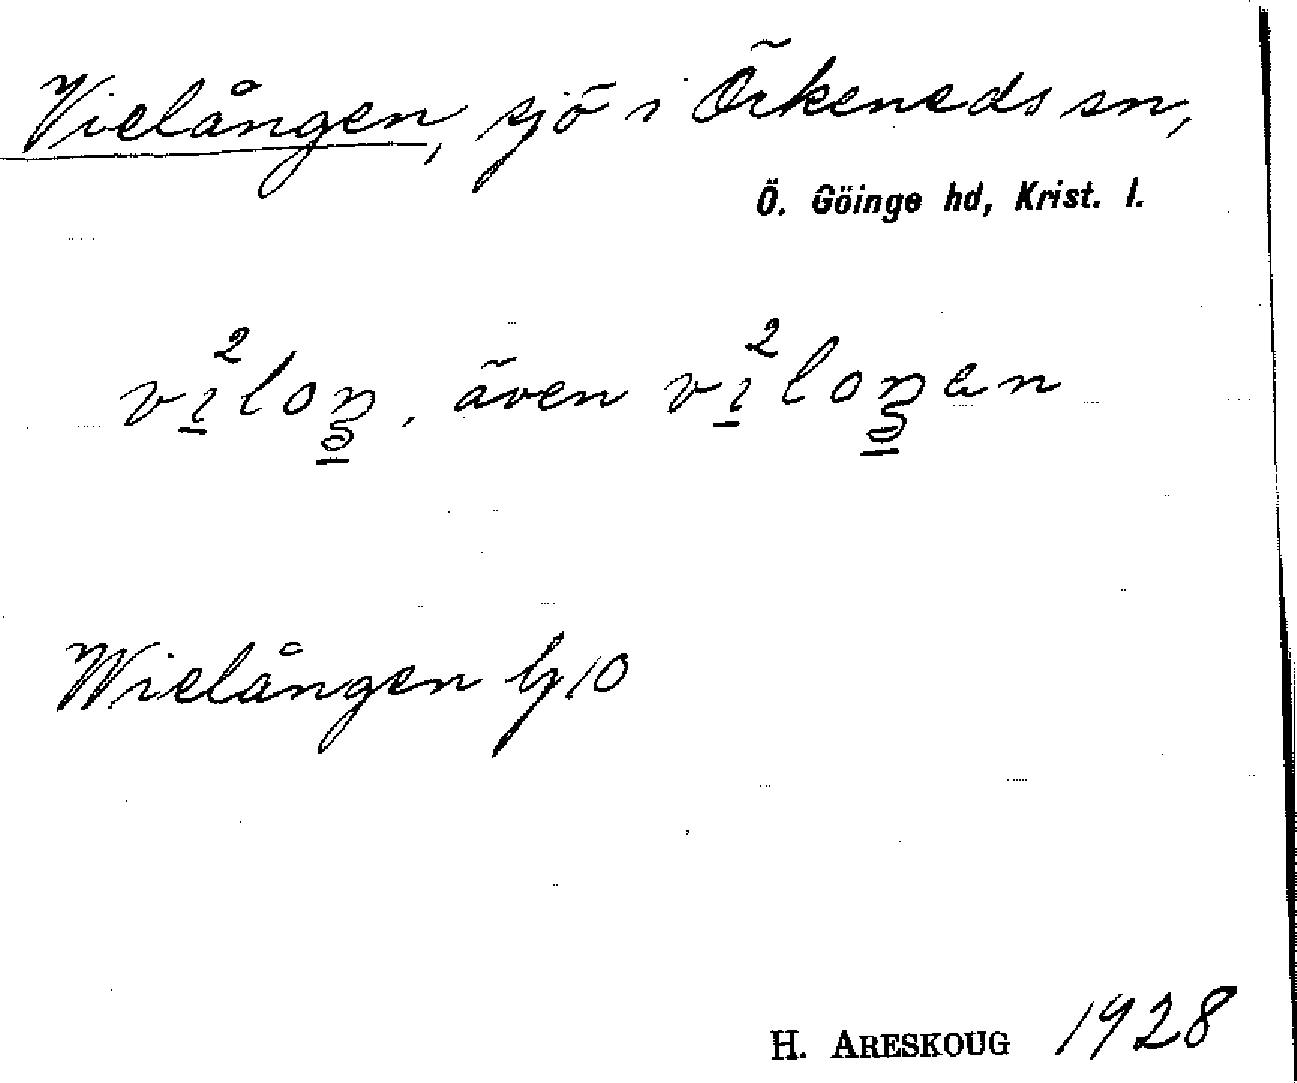 Vielången, sjö i Örkeneds sn,
Ö. Göinge hd, Krist. l.
vi²loŋ, även vi²loŋen
Wielången G10
H. ARESKOUG 1928